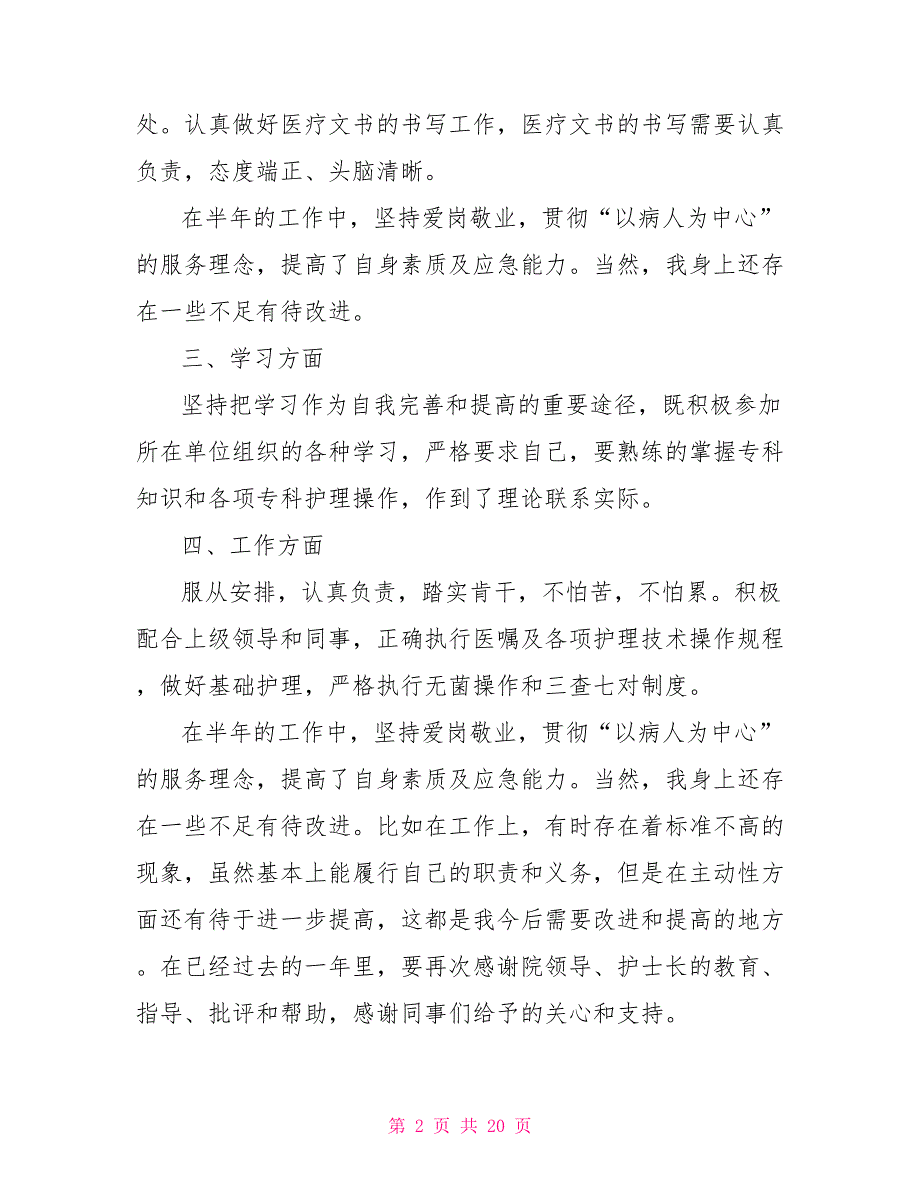 处。认真做好医疗文书的书写工作，医疗文书的书写需要认真
负责，态度端正、头脑清晰。
在半年的工作中，坚持爱岗敬业，贯彻“以病人为中心”
的服务理念，提高了自身素质及应急能力。当然，我身上还存
在一些不足有待改进。
三、学习方面
坚持把学习作为自我完善和提高的重要途径，既积极参加
所在单位组织的各种学习，严格要求自己，要熟练的掌握专科
知识和各项专科护理操作，作到了理论联系实际。
四、工作方面
服从安排，认真负责，踏实肯干，不怕苦，不怕累。积极
配合上级领导和同事，正确执行医嘱及各项护理技术操作规程
，做好基础护理，严格执行无菌操作和三查七对制度。
在半年的工作中，坚持爱岗敬业，贯彻“以病人为中心”
的服务理念，提高了自身素质及应急能力。当然，我身上还存
在一些不足有待改进。比如在工作上，有时存在着标准不高的
现象，虽然基本上能履行自己的职责和义务，但是在主动性方
面还有待于进一步提高，这都是我今后需要改进和提高的地方
。在已经过去的一年里，要再次感谢院领导、护士长的教育、
指导、批评和帮助，感谢同事们给予的关心和支持。
第 2 页 共 20 页